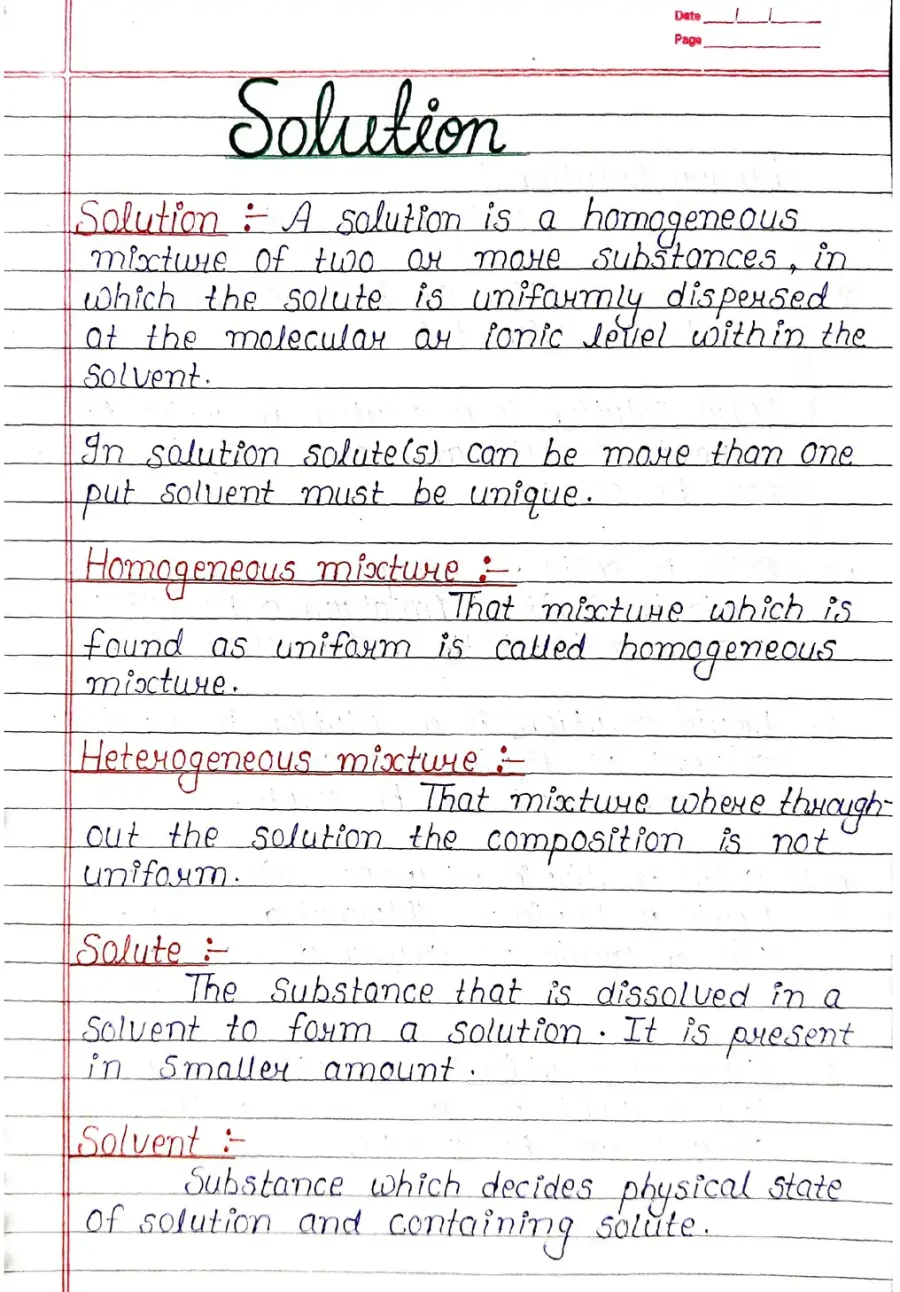 Date / /
Page
Solution
Solution :- A solution is a homogeneous
mixture of two or more substances, in
which the solute is uniformly dispersed
at the molecular or ionic level within the
solvent.
In solution solute(s) can be more than one
put solvent must be unique.
Homogeneous mixture :-
That mixture which is
found as uniform is called homogeneous
mixture.
Heterogeneous mixture :-
That mixture where through-
out the solution the composition is not
uniform.
Solute :-
The Substance that is dissolved in a
Solvent to form a solution. It is present
in smaller amount.
Solvent :-
Substance which decides physical state
of solution and containing solute.